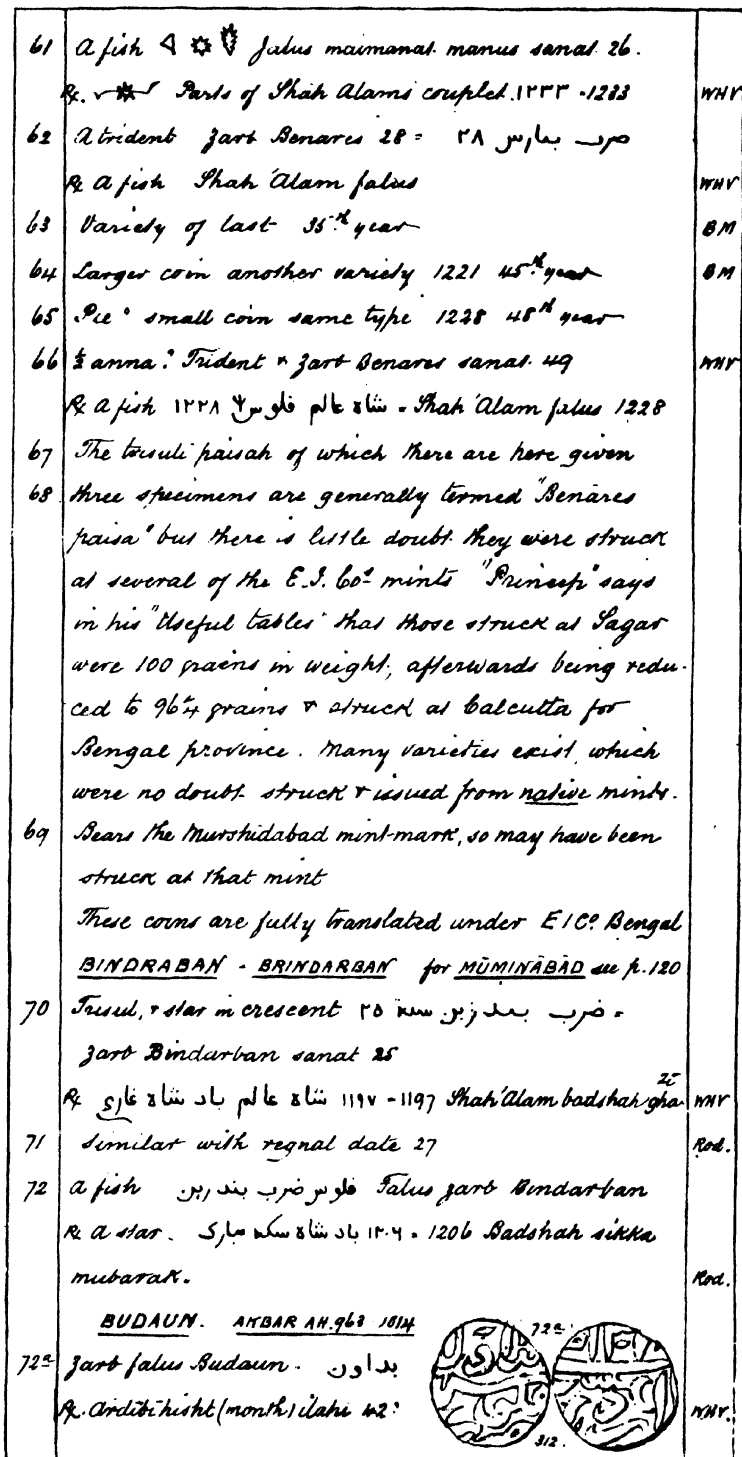 61 A fish falus maimanat manus sanat 26.
Rx. Parts of Shah Alams couplet. ١٢٣٣ - 1233 WHV
62 A trident Zarb Benares 28 = ضرب بنارس ٢٨
Rx A fish Shah 'Alam falus WHV
63 Variety of last 35th year BM
64 Larger coin another variety 1221 45th year BM
65 Pie ? small coin same type 1228 48th year
66 ½ anna ? Trident & Zarb Benares sanat 49 WHV
Rx A fish ١٢٢٨ شاه عالم فلوس = Shah 'Alam falus 1228
67 The trisuli paisah of which there are here given
68 three specimens are generally termed "Benares
paisa" but there is little doubt they were struck
at several of the E.I. Cos mints "Prinsep" says
in his "Useful tables" that those struck at Sagar
were 100 grains in weight, afterwards being redu-
ced to 96¼ grains & struck at Calcutta for
Bengal province. Many varieties exist, which
were no doubt struck & issued from native mints.
69 Bears the Murshidabad mint-mark, so may have been
struck at that mint
These coins are fully translated under E I Co. Bengal
BINDRABAN - BRINDARBAN for MŪMINĀBĀD see p. 120
70 Trisul, & star in crescent ضرب بندربن سنة ٢٥ =
Zarb Bindarban sanat 25
Rx شاه عالم باد شاه غازى ١١٩٧ - 1197 Shah 'Alam badshah ghazi WHV
71 Similar with regnal date 27 Rod.
72 A fish فلوس ضرب بندربن Falus zarb Bindarban
Rx A star. باد شاه سكه مبارك ١٢٠٦ = 1206 Badshah sikka
mubarak. Rod.
BUDAUN. AKBAR AH. 963 1014 72a
72a Zarb falus Budaun. بداون
Rx. Ardibihisht (month) ilahi 42 ? WHV.
312.